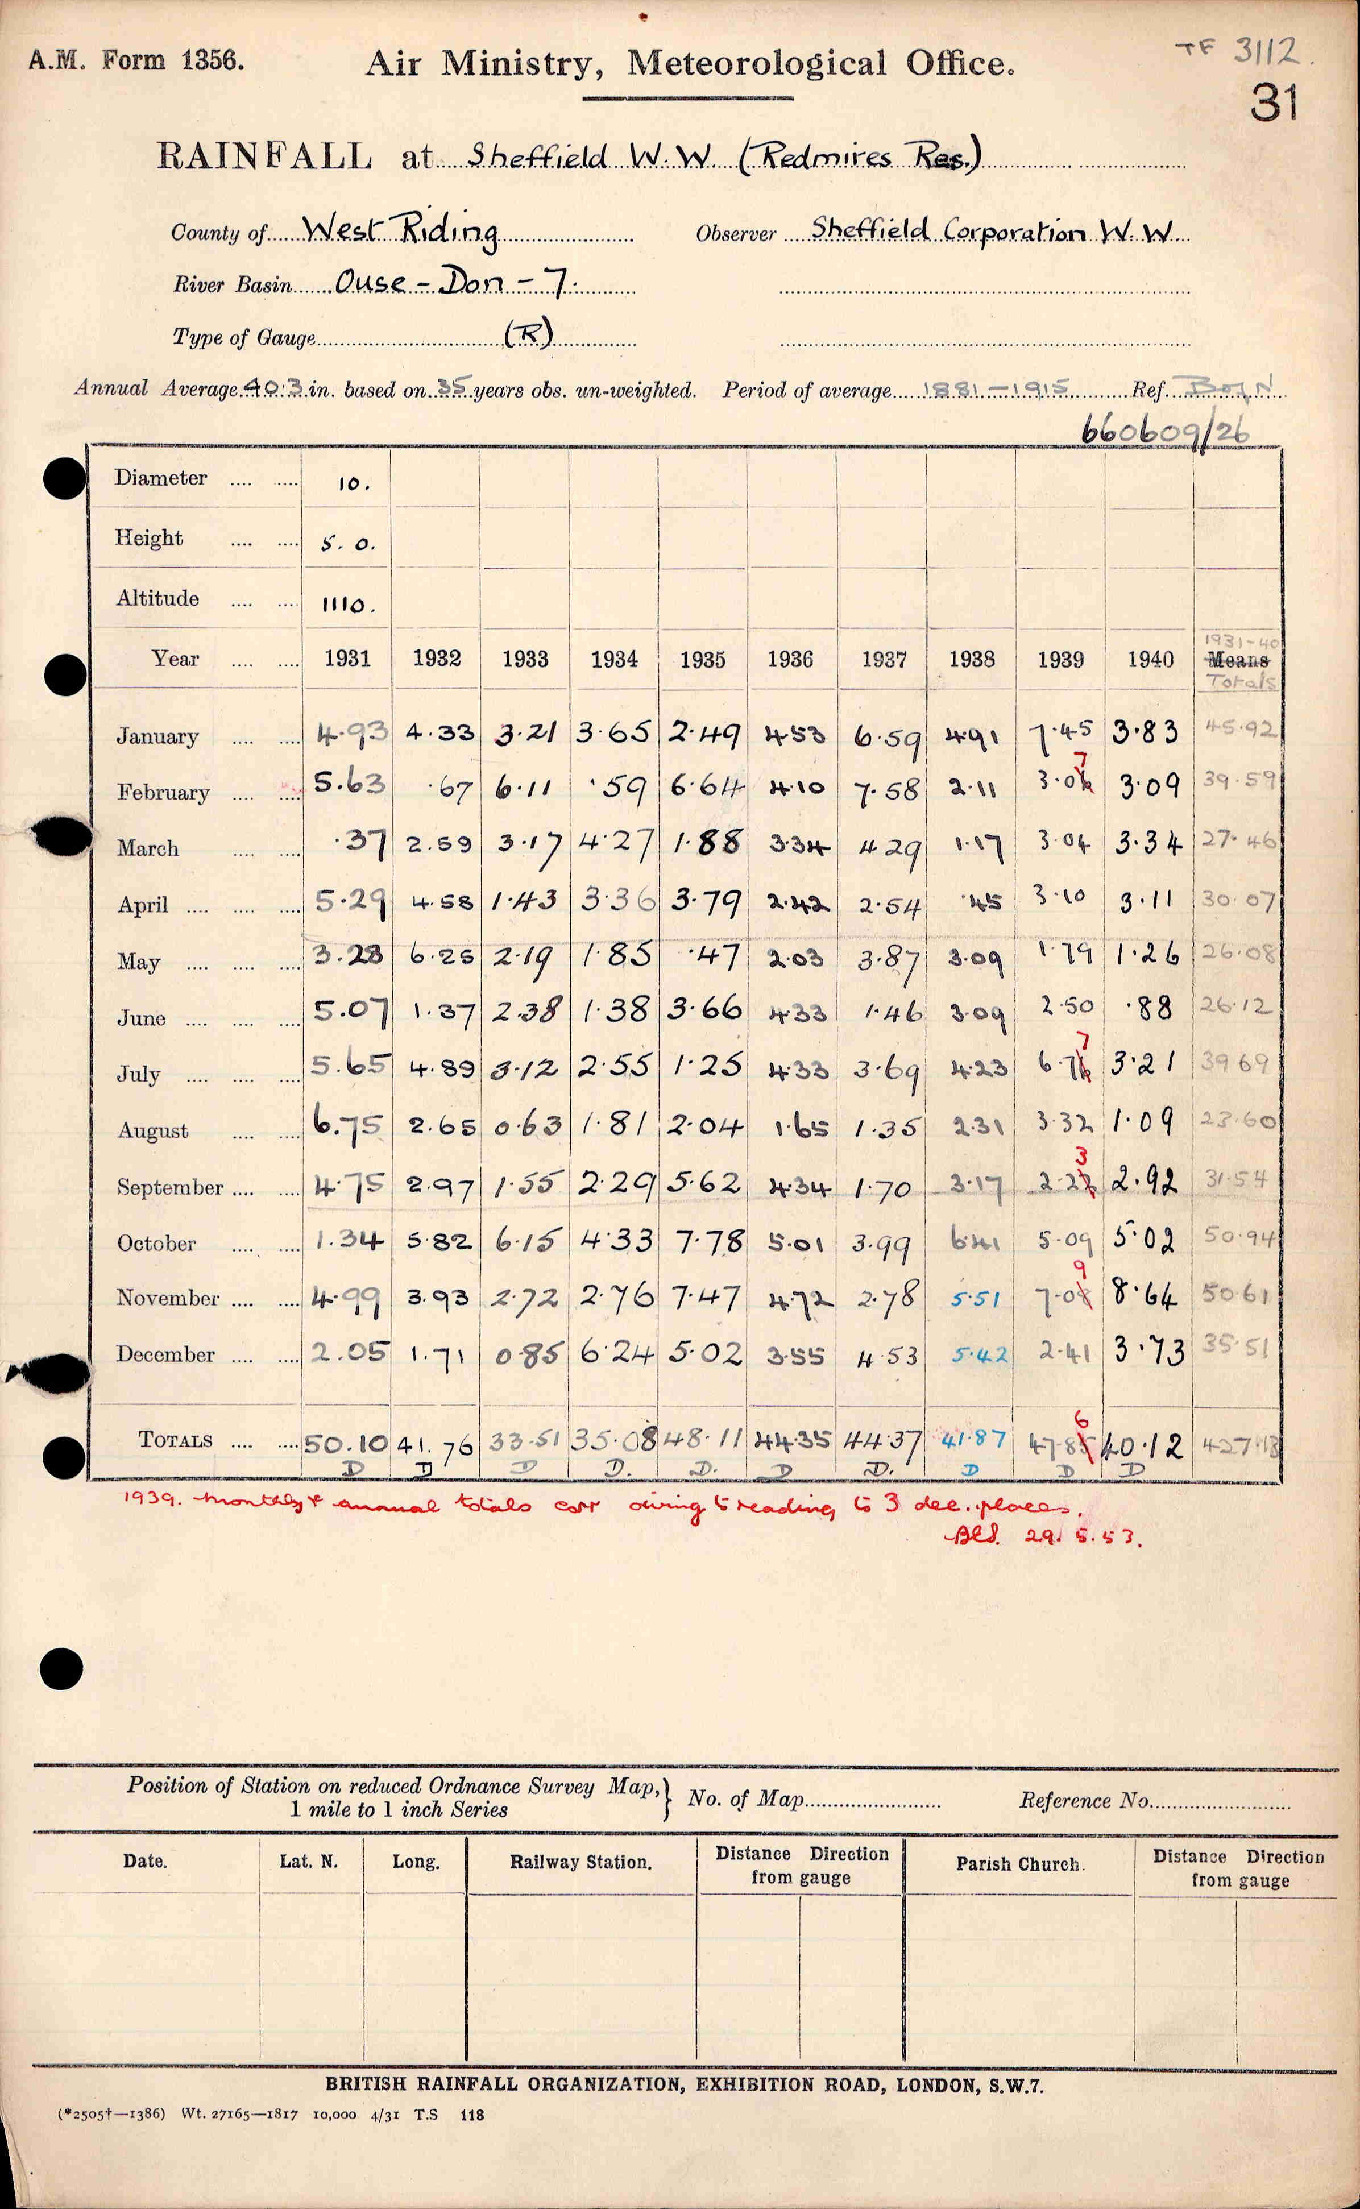 TF 3112.
A.M. Form 1356.
Air Ministry, Meteorological Office.
31
RAINFALL at Sheffield W.W. (Redmires Res.)
County of West Riding Observer Sheffield Corporation W.W.
River Basin Ouse - Don - 7.
Type of Gauge (R)
Annual Average 40.3 in. based on 35 years obs. un-weighted. Period of average 1881-1915 Ref.
660609/26
Diameter 10.
Height 5.0.
Altitude 1110.
1931-40
Year 1931 1932 1933 1934 1935 1936 1937 1938 1939 1940 Means
Totals
January 4.93 4.33 3.21 3.65 2.49 4.53 6.59 4.91 7.45 3.83 45.92
February 5.63 .67 6.11 .59 6.64 4.10 7.58 2.11 3.06 7 3.09 39.59
March .37 2.59 3.17 4.27 1.88 3.34 4.29 1.17 3.04 3.34 27.46
April 5.29 4.58 1.43 3.36 3.79 2.42 2.54 .45 3.10 3.11 30.07
May 3.28 6.25 2.19 1.85 .47 2.03 3.87 3.09 1.79 1.26 26.08
June 5.07 1.37 2.38 1.38 3.66 4.33 1.46 3.09 2.50 .88 26.12
July 5.65 4.89 3.12 2.55 1.25 4.33 3.69 4.23 6.76 7 3.21 39.69
August 6.75 2.65 0.63 1.81 2.04 1.65 1.35 2.31 3.32 1.09 23.60
September 4.75 2.97 1.55 2.29 5.62 4.34 1.70 3.17 2.22 3 2.92 31.54
October 1.34 5.82 6.15 4.33 7.78 5.01 3.99 6.41 5.09 5.02 50.94
November 4.99 3.93 2.72 2.76 7.47 4.72 2.78 5.51 7.08 9 8.64 50.61
December 2.05 1.71 0.85 6.24 5.02 3.55 4.53 5.42 2.41 3.73 35.51
TOTALS 50.10 41.76 33.51 35.08 48.11 44.35 44.37 41.87 47.85 6 40.12 427.13
D D D D. D. D D. D D D
1939. monthly & annual totals corr owing to reading to 3 dec. places.
29.5.53.
Position of Station on reduced Ordnance Survey Map, } No. of Map Reference No.
1 mile to 1 inch Series
Date. Lat. N. Long. Railway Station. Distance Direction from gauge Parish Church. Distance Direction from gauge
BRITISH RAINFALL ORGANIZATION, EXHIBITION ROAD, LONDON, S.W.7.
(*2505†—1386) Wt. 27165—1817 10,000 4/31 T.S 118